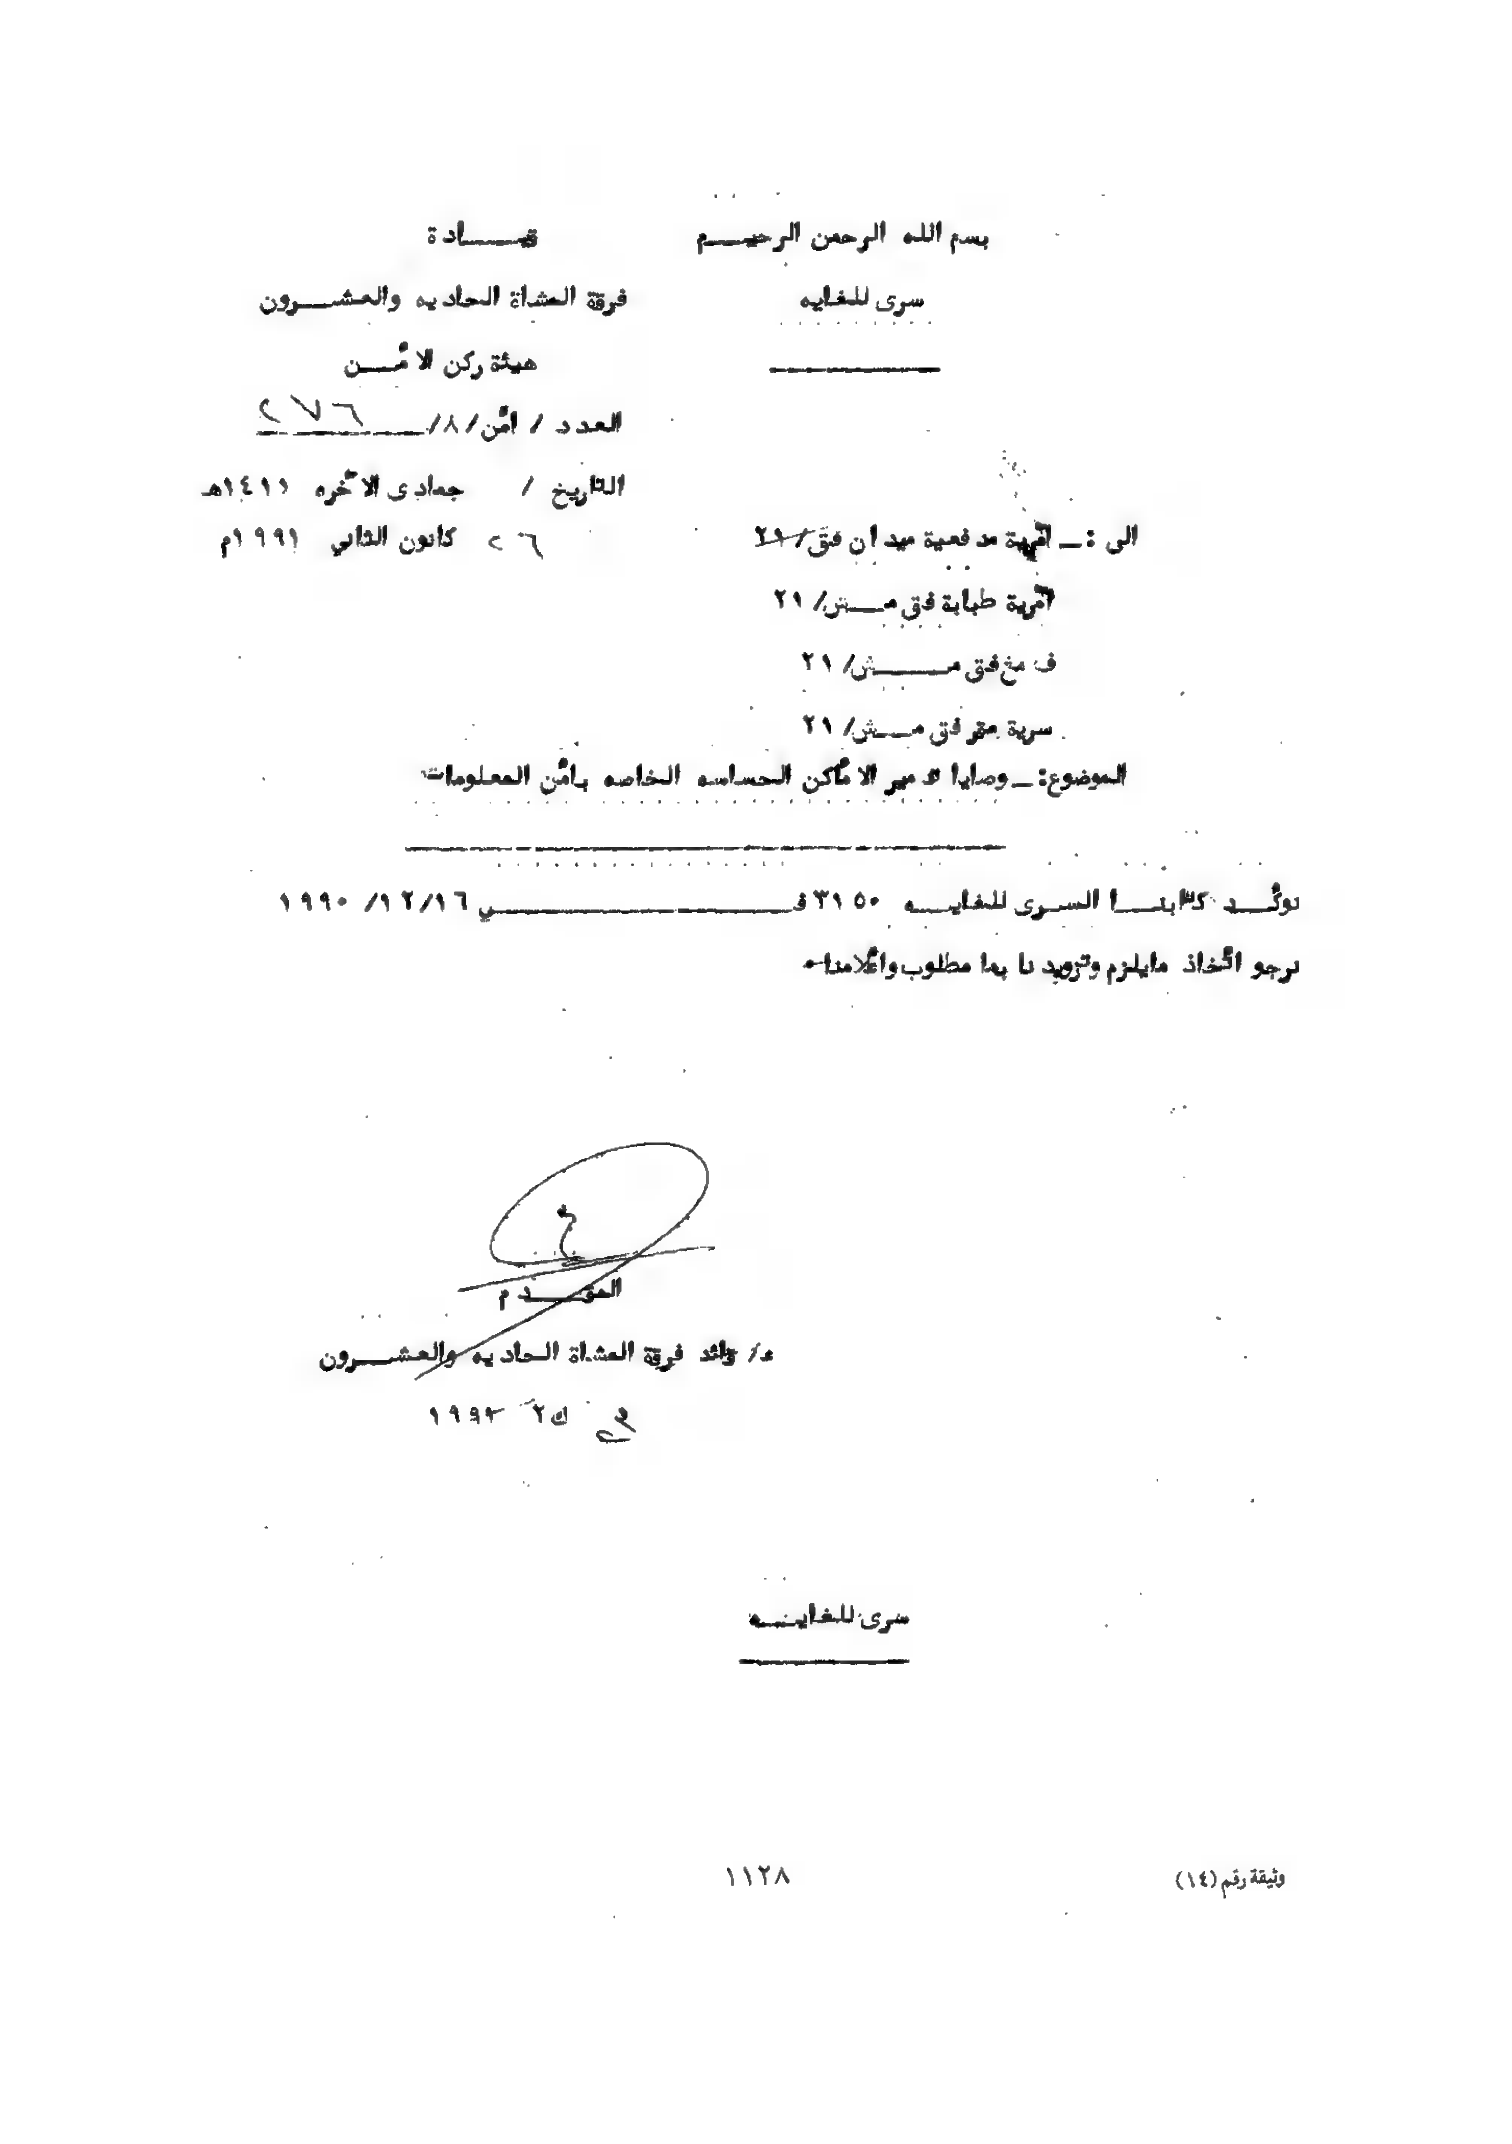 بسم الله الرحمن الرحيم
سرى للغايه
قيادة
فرقة المشاة الحاديه والعشرون
هيئة ركن الأمن
العدد / امن/٨/ ٢٧٦
التاريخ / جمادى الآخره ١٤١١هـ
٢٦ كانون الثاني ١٩٩١م
الى :ـ آمرية مدفعية ميدان فق/٢١
آمرية طبابة فق مش/٢١
ف مغ فق مش/٢١
سرية مقر فق مش/٢١
الموضوع:ـ وصايا تدمير الأماكن الحساسه الخاصه بأمن المعلومات
نوكد كتابنا السرى للغايه ٣١٥٠ في ١٩٩٠/١٢/١٦
نرجو اتخاذ مايلزم وتزويدنا بما مطلوب وأعلامنا٠
المقدم
ع/ قائد فرقة المشاة الحاديه والعشرون
ك٢ ١٩٩٢
سرى للغايه
وثيقة رقم (١٤)
١١٢٨